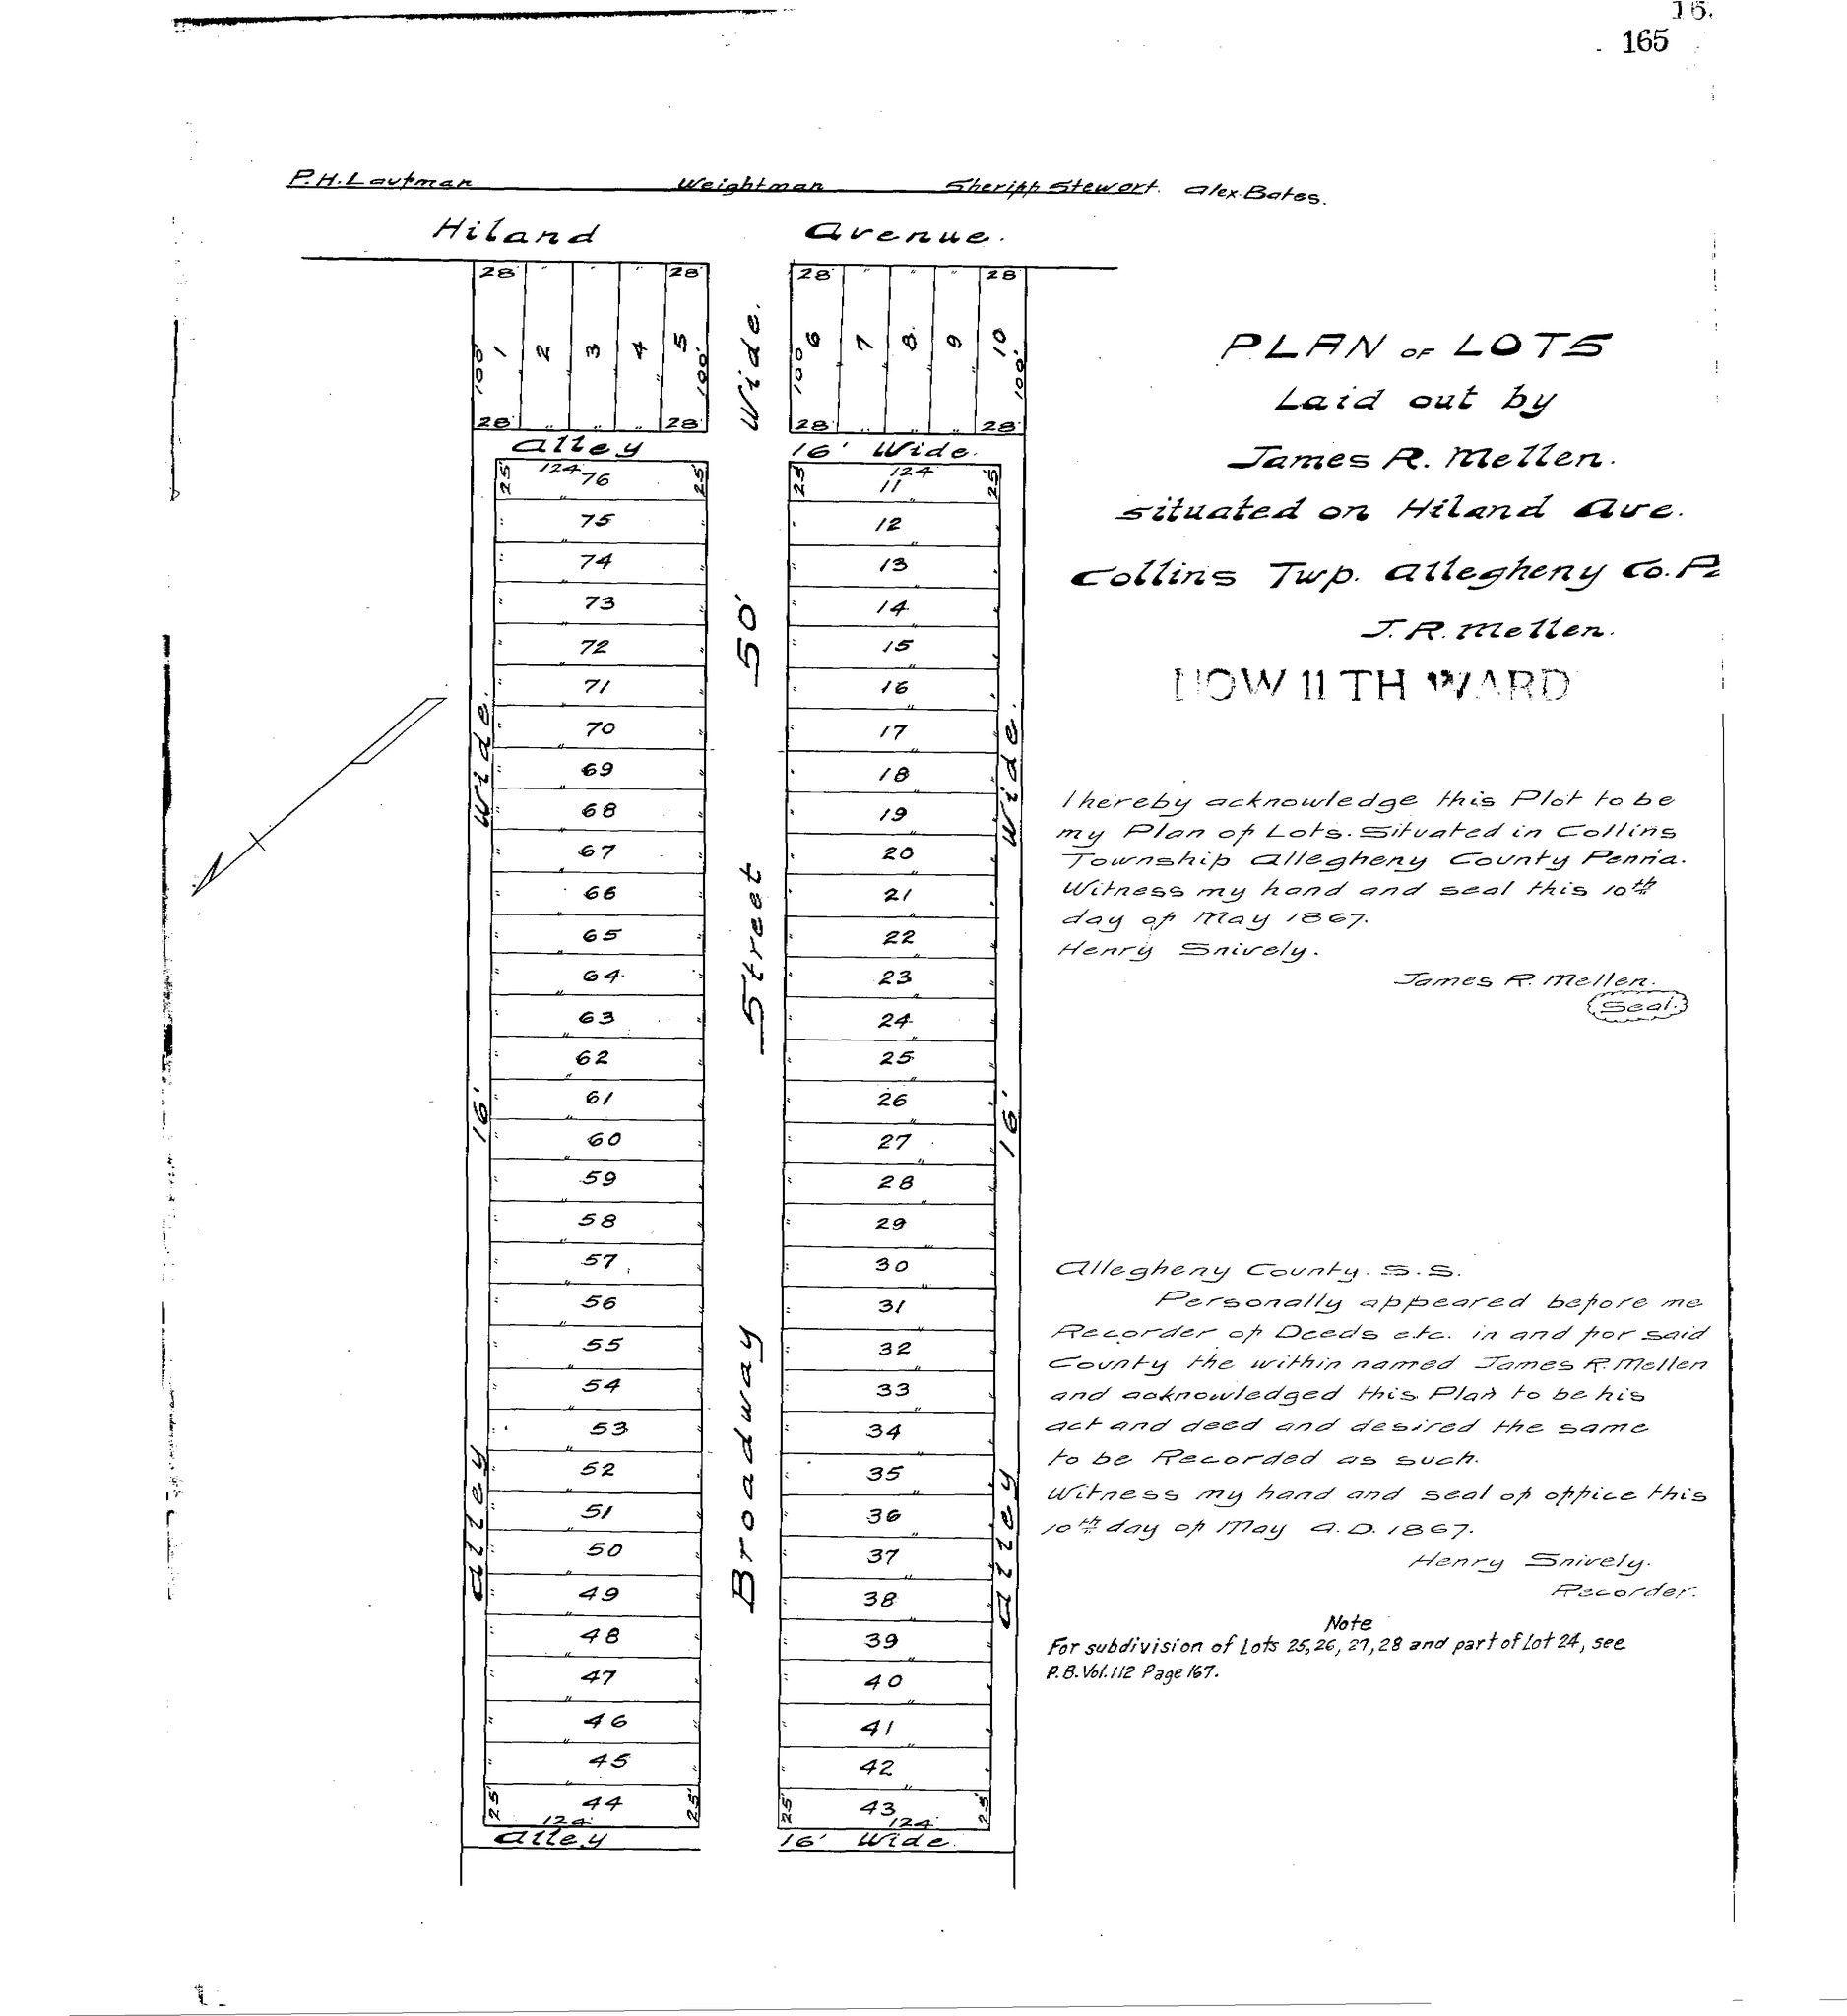 165
P.H. Laufman Weightman Sheriff Stewart. Alex. Bates.
Hiland Avenue.
28' " " " 28' 28' " " " 28
100' 1 2 3 4 5 100' 100 6 7 8 9 10 100'
28' " " " 28' 28' " " " 28'
Alley 16' Wide.
25' 124' 76 25' 25' 124 11 25'
75 12
74 13
73 14
72 15
71 16
70 17
69 18
68 19
67 20
66 21
65 22
64 23
63 24
62 25
61 26
60 27
59 28
58 29
57 30
56 31
55 32
54 33
53 34
52 35
51 36
50 37
49 38
48 39
47 40
46 41
45 42
25' 44 25' 25' 43 25'
124' 124'
Alley 16' Wide.
Alley 16' Wide.
Broadway Street 50' Wide.
Alley 16' Wide.
PLAN OF LOTS
Laid out by
James R. Mellen.
situated on Hiland Ave.
Collins Twp. Allegheny Co. Pa
J.R. Mellen.
NOW 11TH WARD
I hereby acknowledge this Plot to be
my Plan of Lots. Situated in Collins
Township Allegheny County Penn'a.
Witness my hand and seal this 10th
day of May 1867.
Henry Snively.
James R. Mellen.
Seal.
Allegheny County. S.S.
Personally appeared before me
Recorder of Deeds etc. in and for said
County the within named James R. Mellen
and acknowledged this Plan to be his
act and deed and desired the same
to be Recorded as such.
Witness my hand and seal of office this
10th day of May A.D. 1867.
Henry Snively.
Recorder.
Note
For subdivision of Lots 25, 26, 27, 28 and part of Lot 24, see
P.B. Vol. 112 Page 167.